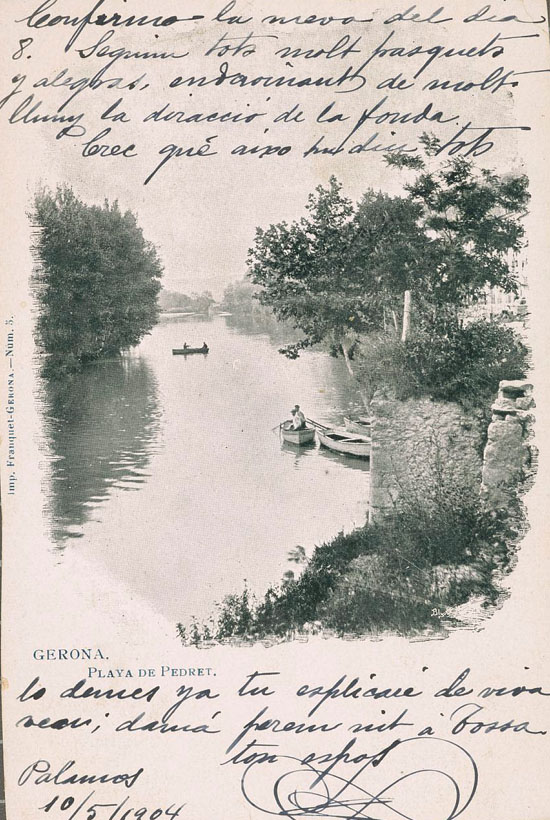 Confirmo la meva del dia
8. Seguim tots molt frasquets
y alegras, endavinant de molt
lluny la diracció de la fonda.
Crec qué aixo tots
Imp. Franquet-GERONA.—Núm. 5.
GERONA.
PLAYA DE PEDRET.
lo demes ya tu esplicaré de viva
veu; demá farem nit á Tossa
ton espos
Palamos
10/5/1904